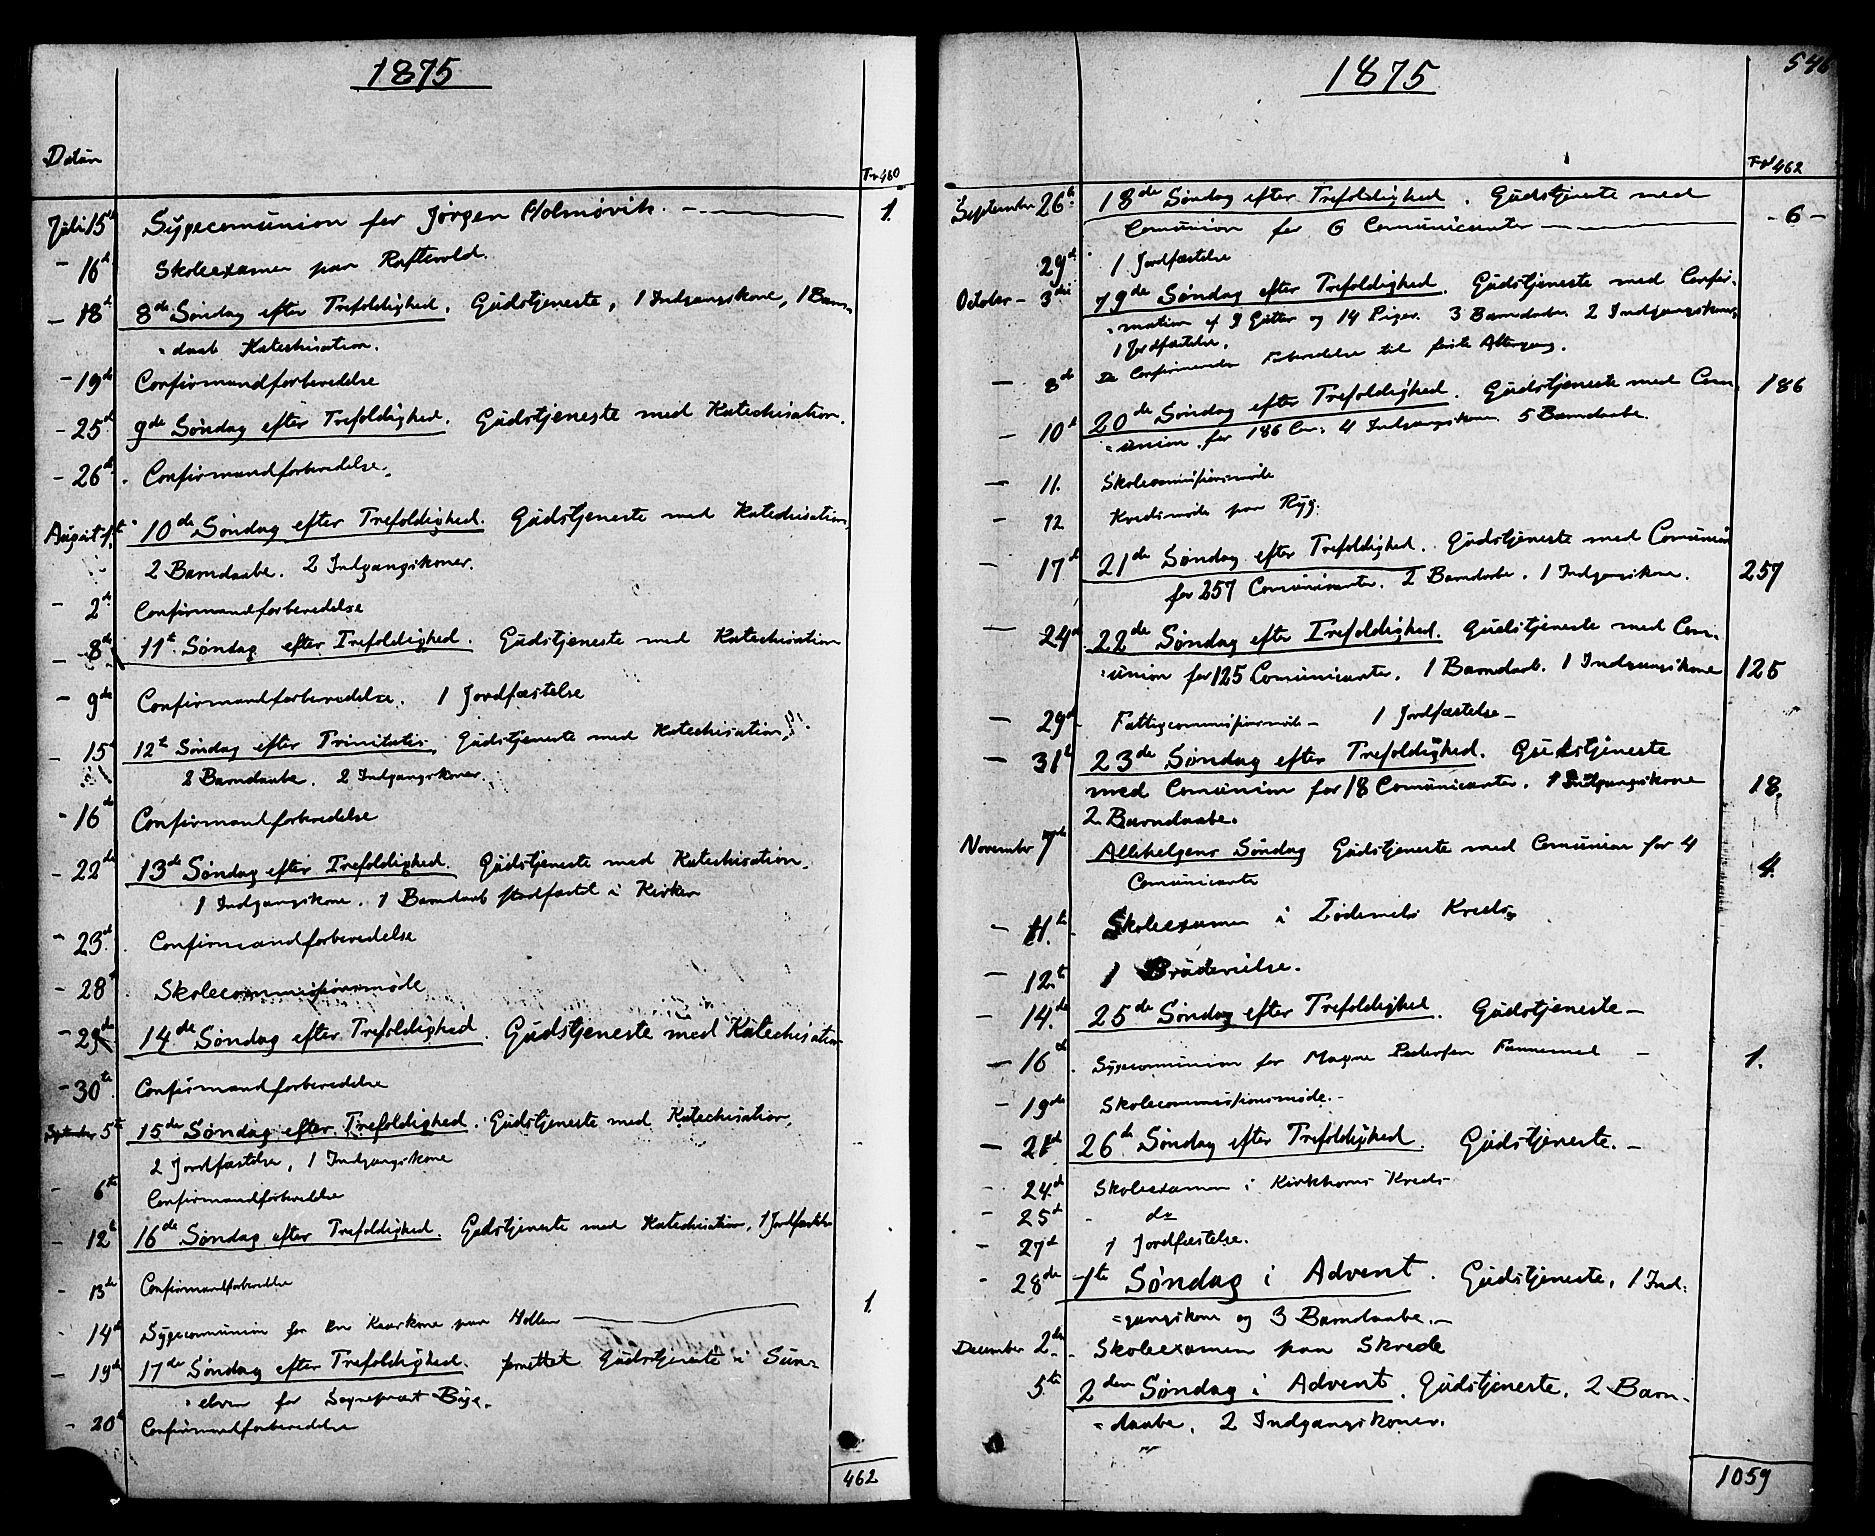 1875
Datum
Tr. 460
Juli 15de Sygecomunion for Jørgen Holmøvik. 1.
- 16de Skoleexamen paa Raftevold.
- 18de 8de Søndag efter Trefoldighed. Gudstjeneste, 1 Indgangskone, 1 Barn-
daab Katechisation.
- 19de Confirmandforberedelse
- 25de 9de Søndag efter Trefoldighed. Gudstjeneste med Katechisation.
- 26de Confirmandforberedelse.
August 1ste 10de Søndag efter Trefoldighed. Gudstjeneste med Katechisation,
2 Barndaabe. 2 Indgangskoner.
- 2de Confirmandforberedelse
- 8de 11te Søndag efter Trefoldighed. Gudstjeneste med Katechisation
- 9de Confirmandforberedelse. 1 Jordfæstelse
- 15de 12te Søndag efter Trinitatis, Gudstjeneste med Katechisation,
2 Barndaabe. 2 Indgangskoner.
- 16de Confirmandforberedelse
- 22de 13de Søndag efter Trefoldighed. Gudstjeneste med Katechisation,
1 Indgangskone. 1 Barndaab stadfæstet i Kirken
- 23de Confirmandforberedelse
- 28de Skolecommissionsmøde
- 29de 14de Søndag efter Trefoldighed. Gudstjeneste med Katechisation
- 30te Confirmandforberedelse
September 5te 15de Søndag efter Trefoldighed. Gudstjeneste med Katechisation,
2 Jordfæstelse, 1 Indgangskone
- 6te Confirmandforberedelse
- 12te 16de Søndag efter Trefoldighed. Gudstjeneste med Katechisation, 1 Jordfæstelse
- 13de Confirmandforberedelse
- 14de Sygecomunion for en Kaarkone paa Hollen 1.
- 19de 17de Søndag efter Trefoldighed. forrettet Gudstjeneste i Sun-
elven for Sognepræst Büge.
- 20de Confirmandforberedelse
462
1875
546
Tr. 462
September 26de 18de Søndag efter Trefoldighed. Gudstjeneste med
Comunion for 6 Comunicanter - 6 -
29de 1 Jordfæstelse
October - 3die 19de Søndag efter Trefoldighed. Gudstjeneste med Confir-
mation af 9 Gutter og 14 Piger. 3 Barndaabe 2 Indgangskoner
1 Jordfæstelse.
- 8de De Confirmeredes Forberedelse til første Altergang.
- 10de 20de Søndag efter Trefoldighed. Gudstjeneste med Com- 186
union for 186 Com: 4 Indgangskoner. 5 Barndaabe.
- 11. Skolecommissionsmøde
- 12 Kredsmøde paa Ryg.
- 17de 21de Søndag efter Trefoldighed. Gudstjeneste med Comunion
for 257 Comunicanter. 2 Barndaabe. 1 Indgangskone. 257
- 24de 22de Søndag efter Trefoldighed. Gudstjeneste med Com-
union for 125 Comunicanter. 1 Barndaab. 1 Indgangskone 125
- 29de Fattigcommissionsmøde - 1 Jordfæstelse -
- 31te 23de Søndag efter Trefoldighed. Gudstjeneste
med Comunion for 18 Comunicanter. 1 Indgangskone 18.
2 Barndaabe.
November 7de Allehelgens Søndag Gudstjeneste med Comunion for 4
Comunicanter 4.
- 11te Skoleexamen i Kreds
- 12te 1 Brudevielse.
- 14de 25de Søndag efter Trefoldighed. Gudstjeneste -
- 16de Sygecomunion for Magne Pedersen Fannemel - 1.
- 19de Skolecommissionsmøde. -
- 21de 26de Søndag efter Trefoldighed. Gudstjeneste. -
- 24de Skoleexamen i Kirkhorns Kreds -
- 25de - do
- 27de 1 Jordfæstelse.
- 28de 1ste Søndag i Advent. Gudstjeneste, 1 Ind-
gangskone og 3 Barndaabe. -
December 2den - Skoleexamen paa Skrede
5te 2den Søndag i Advent. Gudstjeneste. 2 Barn-
daabe. 2 Indgangskoner.
1059